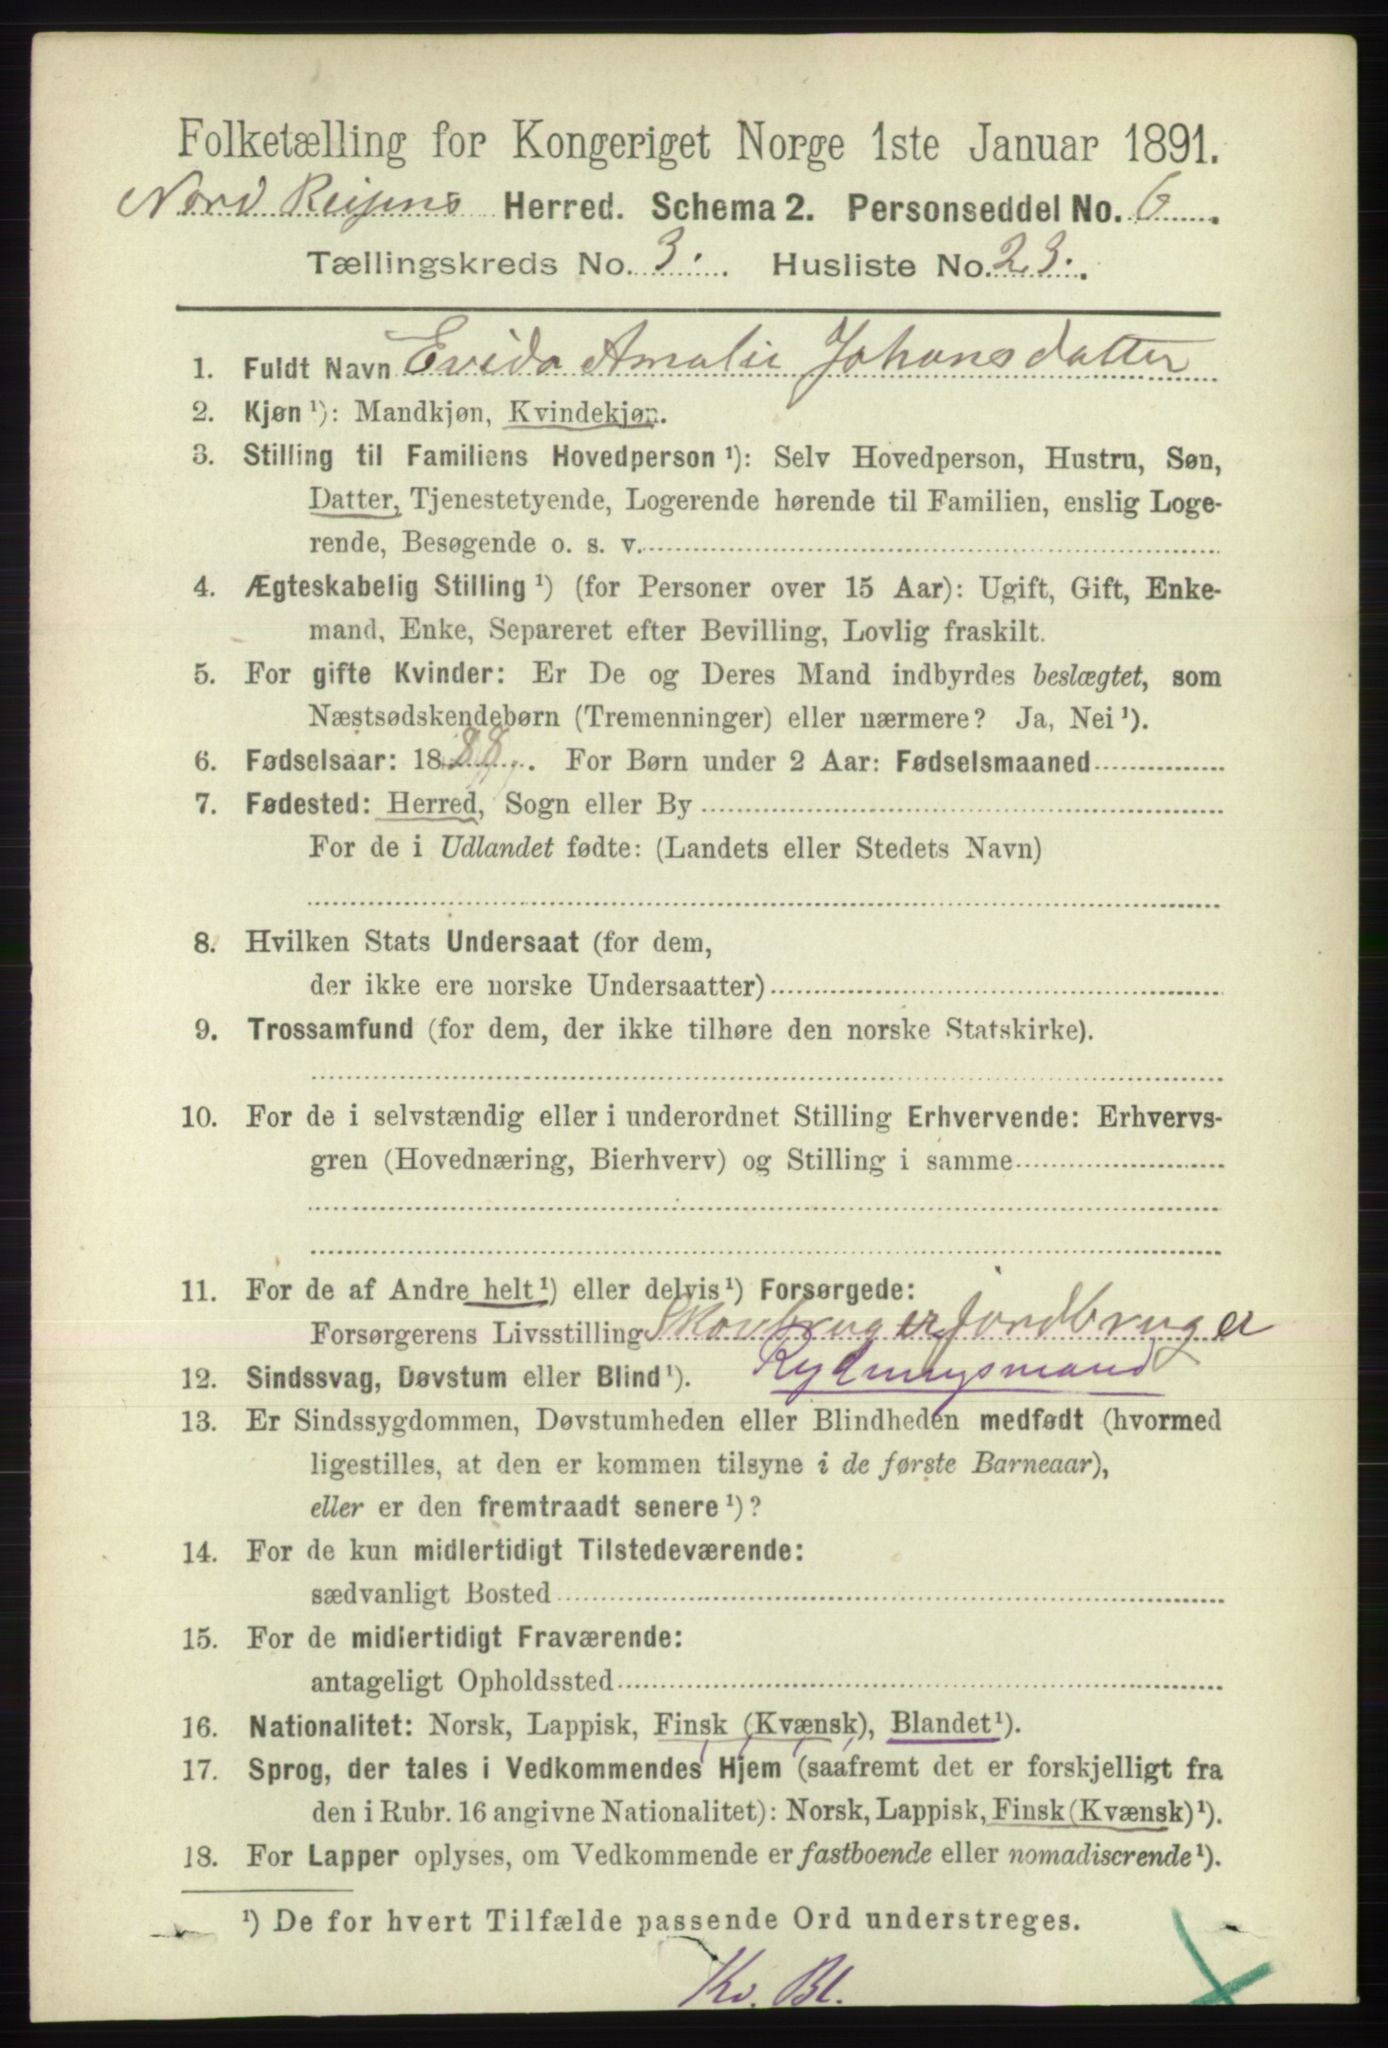 Folketælling for Kongeriget Norge 1ste Januar 1891.
Nord Reisens Herred. Schema 2. Personseddel No. 6.
Tællingskreds No. 3. Husliste No. 23.
1. Fuldt Navn Evida Amalie Johansdatter
2. Kjøn ¹): Mandkjøn, Kvindekjøn.
3. Stilling til Familiens Hovedperson ¹): Selv Hovedperson, Hustru, Søn,
Datter, Tjenestetyende, Logerende hørende til Familien, enslig Loge-
rende, Besøgende o. s. v.
4. Ægteskabelig Stilling ¹) (for Personer over 15 Aar): Ugift, Gift, Enke-
mand, Enke, Separeret efter Bevilling, Lovlig fraskilt.
5. For gifte Kvinder: Er De og Deres Mand indbyrdes beslægtet, som
Næstsødskendebørn (Tremenninger) eller nærmere? Ja, Nei ¹).
6. Fødselsaar: 1888. For Børn under 2 Aar: Fødselsmaaned
7. Fødested: Herred, Sogn eller By
For de i Udlandet fødte: (Landets eller Stedets Navn)
8. Hvilken Stats Undersaat (for dem,
der ikke ere norske Undersaatter)
9. Trossamfund (for dem, der ikke tilhøre den norske Statskirke).
10. For de i selvstændig eller i underordnet Stilling Erhvervende: Erhvervs-
gren (Hovednæring, Bierhverv) og Stilling i samme
11. For de af Andre helt ¹) eller delvis ¹) Forsørgede:
Forsørgerens Livsstilling Skovbruger jordbruger
12. Sindssvag, Døvstum eller Blind ¹). Rydningsmand
13. Er Sindssygdommen, Døvstumheden eller Blindheden medfødt (hvormed
ligestilles, at den er kommen tilsyne i de første Barneaar),
eller er den fremtraadt senere ¹)?
14. For de kun midlertidigt Tilstedeværende:
sædvanligt Bosted
15. For de midlertidigt Fraværende:
antageligt Opholdssted
16. Nationalitet: Norsk, Lappisk, Finsk (Kvænsk), Blandet ¹).
17. Sprog, der tales i Vedkommendes Hjem (saafremt det er forskjelligt fra
den i Rubr. 16 angivne Nationalitet): Norsk, Lappisk, Finsk (Kvænsk) ¹).
18. For Lapper oplyses, om Vedkommende er fastboende eller nomadiserende ¹).
¹) De for hvert Tilfælde passende Ord understreges.
Kv. Bl.